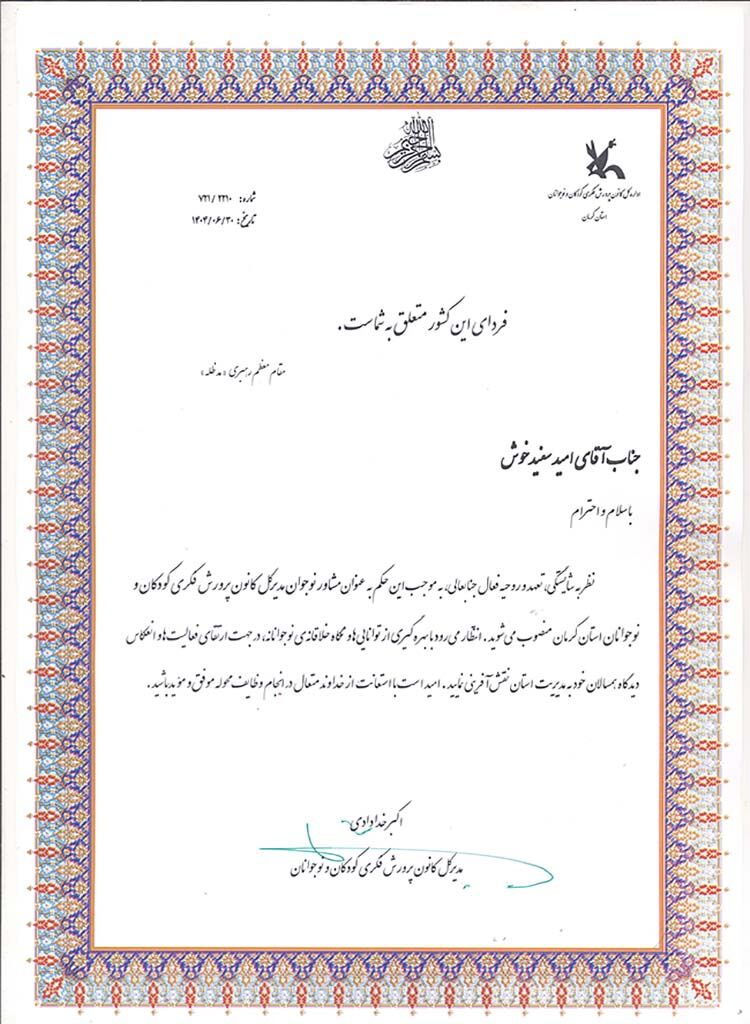 بسم الله الرحمن الرحیم
اداره کل کانون پرورش فکری کودکان و نوجوانان
استان کرمان
شماره: ۷۲۱/۲۲۱۰
تاریخ: ۱۴۰۴/۰۶/۳۰
فردای این کشور متعلق به شماست.
مقام معظم رهبری «مدظله»
جناب آقای امید سفیدخوش
باسلام و احترام
نظر به شایستگی، تعهد و روحیه فعال جنابعالی، به موجب این حکم به عنوان مشاور نوجوان مدیرکل کانون پرورش فکری کودکان و
نوجوانان استان کرمان منصوب می‌شوید. انتظار می‌رود با بهره‌گیری از توانایی‌ها و نگاه خلاقانه‌ی نوجوانانه، در جهت ارتقای فعالیت‌ها و انعکاس
دیدگاه همسالان خود به مدیریت استان نقش‌آفرینی نمایید. امید است با استعانت از خداوند متعال در انجام وظایف محوله موفق و مؤید باشید.
اکبر خدادادی
مدیرکل کانون پرورش فکری کودکان و نوجوانان